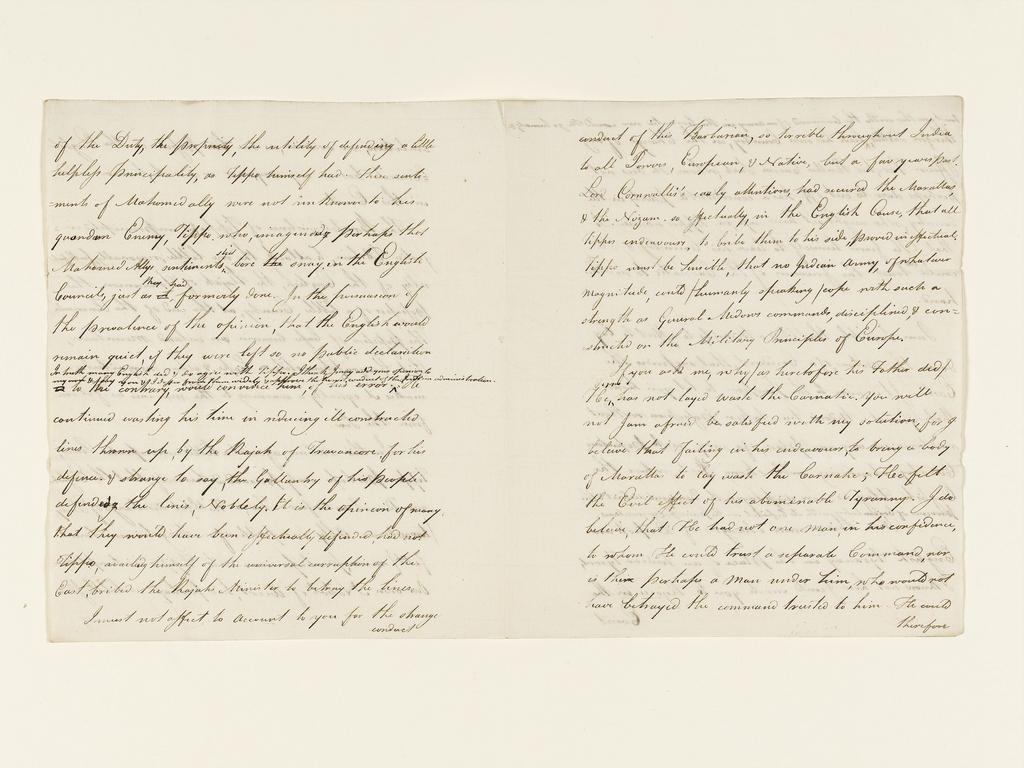 of the Duty, the propriety, the utility of defending a little
helpless principality, as Tippo himself had. These senti-
=ments of Mahomed ally were not unknown to his
quondam Enemy, Tippo, who, imagening perhaps that
Mahomed Ally's sentiments, bore the sway, in the English
Still
Councils, just as formerly done. In the persuasion of
they had
the prevalence of the opinion, that the English would
remain quiet, if they were left so no public declaration
In truth many English did & do agree with Tippo. I think I may add your opinion to
administration.
to the contrary, would convince him, of his error. He
continued wasting his time in reducing ill constructed
lines thrown up, by the Rajah of Travancore, for his
defence. & strange to say, the Gallantry of his people
defending the lines, Nobly. It is the opinion of many,
that they would have been effectually defended had not
Tippo, availing himself of the universal corruption of the
East, bribed the Rajahs Minister to betray the lines
I must not affect to account to you for the strange
conduct
conduct of this Barbarian, so terrible throughout India
to all Powers, European, & Native, but a few years past.
Lord Cornwallis's early attentions, had secured the Marattas
& the Nizam. so effectually, in the English Cause, that all
Tippos endeavours, to bribe them to his side, proved ineffectual.
Tippo must be sensible, that no Indian Army, of whatever
magnitude, could /humanly speaking/ cope with such a
strength as General Medows commands, disciplined & con-
structed on the Military Principles of Europe.
If you ask me, why /as heretofore his Father did/
He, has not layed waste the Carnatic. You will
not I am afraid be satisfied with my solution, for I
believe that failing in his endeavours, to bring a body
of Maratta to lay wast the Carnatic; He felt
the Evil effect of his abominable Tyranny. I do
believe, that He had not one man, in his confidence,
to whom He could trust a separate Command, nor
is there perhaps a man under him, who would not
have betrayed the command trusted to him. He could
therefore